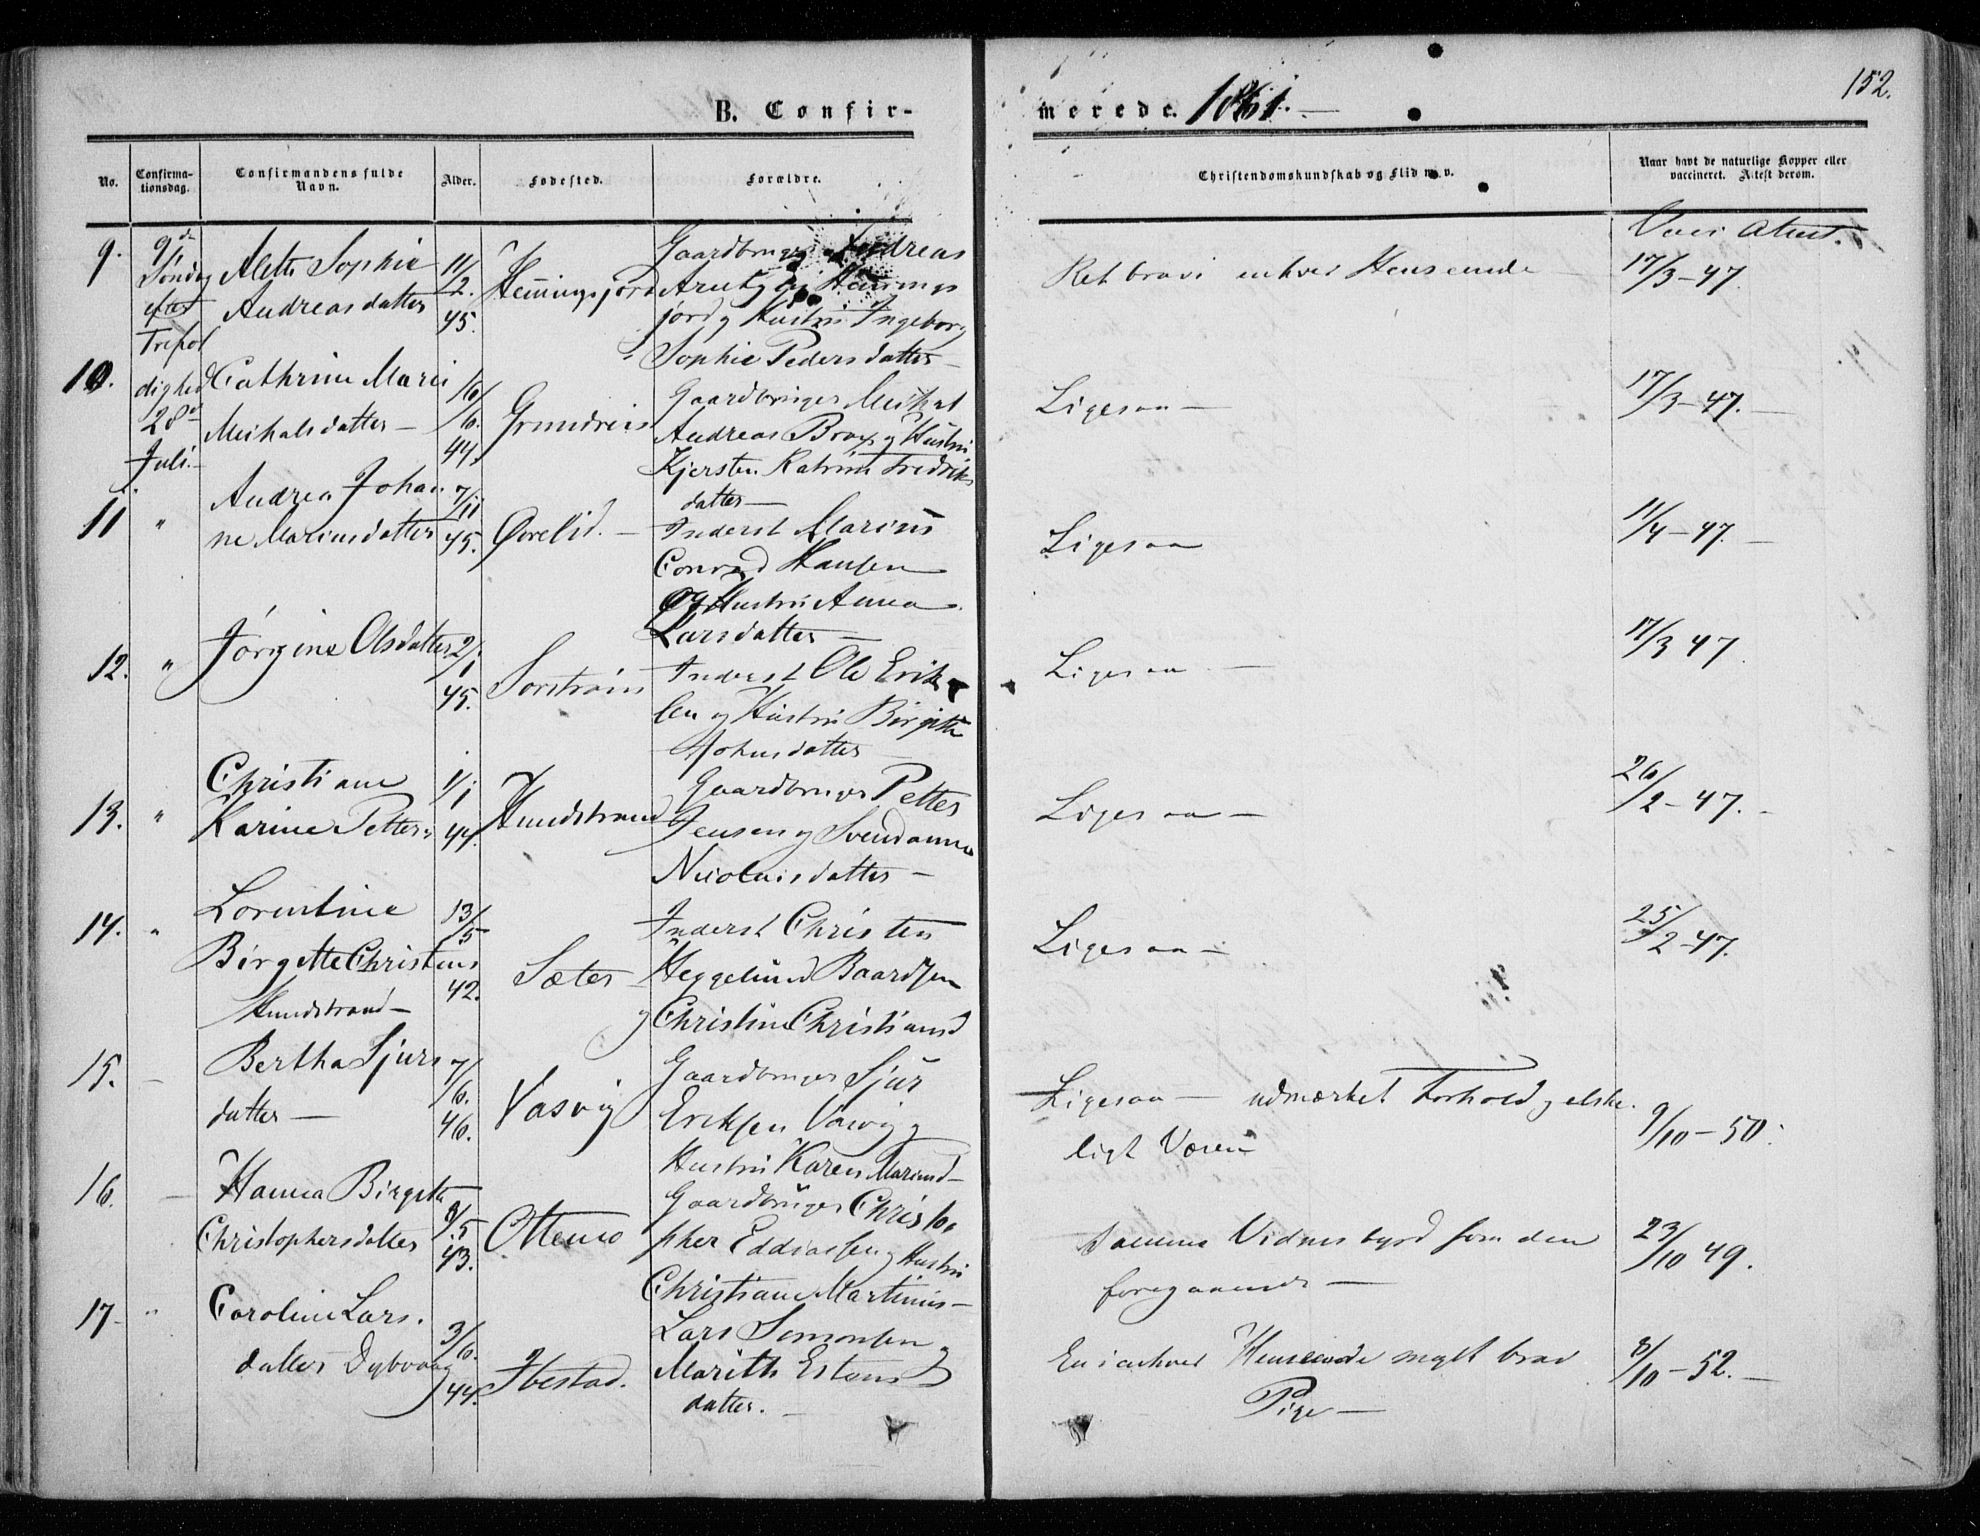 152.
B. Confirmerede. 1861. —
No.
Confirmationsdag.
Confirmandens fulde Navn.
Alder.
Fødested.
Forældre.
Christendomskundskab og Flid m. v.
Naar havt de naturlige Kopper eller vaccineret. Attest derom.
9.
9de
Søndag
efter
Trefol
dighed
28de
Juli.
Aletta Sophie
Andreasdatter
11/2.
45.
Hemingsjord
Gaardbruger Andreas
Hemings
jord og Hustru Ingeborg
Sophie Pedersdatter —
Ret brav i enhver Henseende
Vacc. Attest.
17/3-47.
10.
Cathrine Marie
Mikalsdatter —
16/6.
44.
Grundreis
Gaardbruger Mikal
Andreas Brox og Hustru
Kjersten Katrine Fredriks
datter —
Ligesaa —
17/3-47. —
11 "
Andrea Johan
ne Mariusdatter
7/11
45.
Øvrelid. —
Inderst Marius
Conrad Hansen
og Hustru Anna
Larsdatter —
Ligesaa
11/4-47. —
12. "
Jørgine Olsdatter
2/1
45.
Sorstrøm
Inderst Ole Erik
sen og Hustru Birgitte
Johnsdatter —
Ligesaa —
17/3 47.
13. "
Christiane
Karine Petters
1/1
44.
Kundstrand
Gaardbruger Petter
Jensen og Svendanna
Nicolaisdatter —
Ligesaa —
26/2-47. —
14. "
Lorentine
Birgitte Christens
Kundstrand —
13/5
42.
Sæter —
Inderst Christen
Heggelund Baardsen
og Christine Christiansd
Ligesaa —
25/2-47.
15. —
Bertha Sjurs
datter —
7/6.
46.
Vasvig
Gaardbruger Sjur
Eriksen Vasvig og
Hustru Karen Mariusd —
Ligesaa — udmærket Forhold og elske.
ligt Væsen
9/10-50.
16. —
Hanna Birgitte
Christophersdatter
8/5
43.
Ottemo
Gaardbruger Christo
pher Eddiassen og Hustru
Christiane Martinus —
Samme Vidnesbyrd som den
foregaaende —
23/10 49.
17. "
Caroline Lars.
datter Dybvaag
3/6.
44.
Ibestad.
Lars Simonsen og
Marith Estensd
datter. —
En i enhver Henseende meget brav
Pige —
8/10-52. —